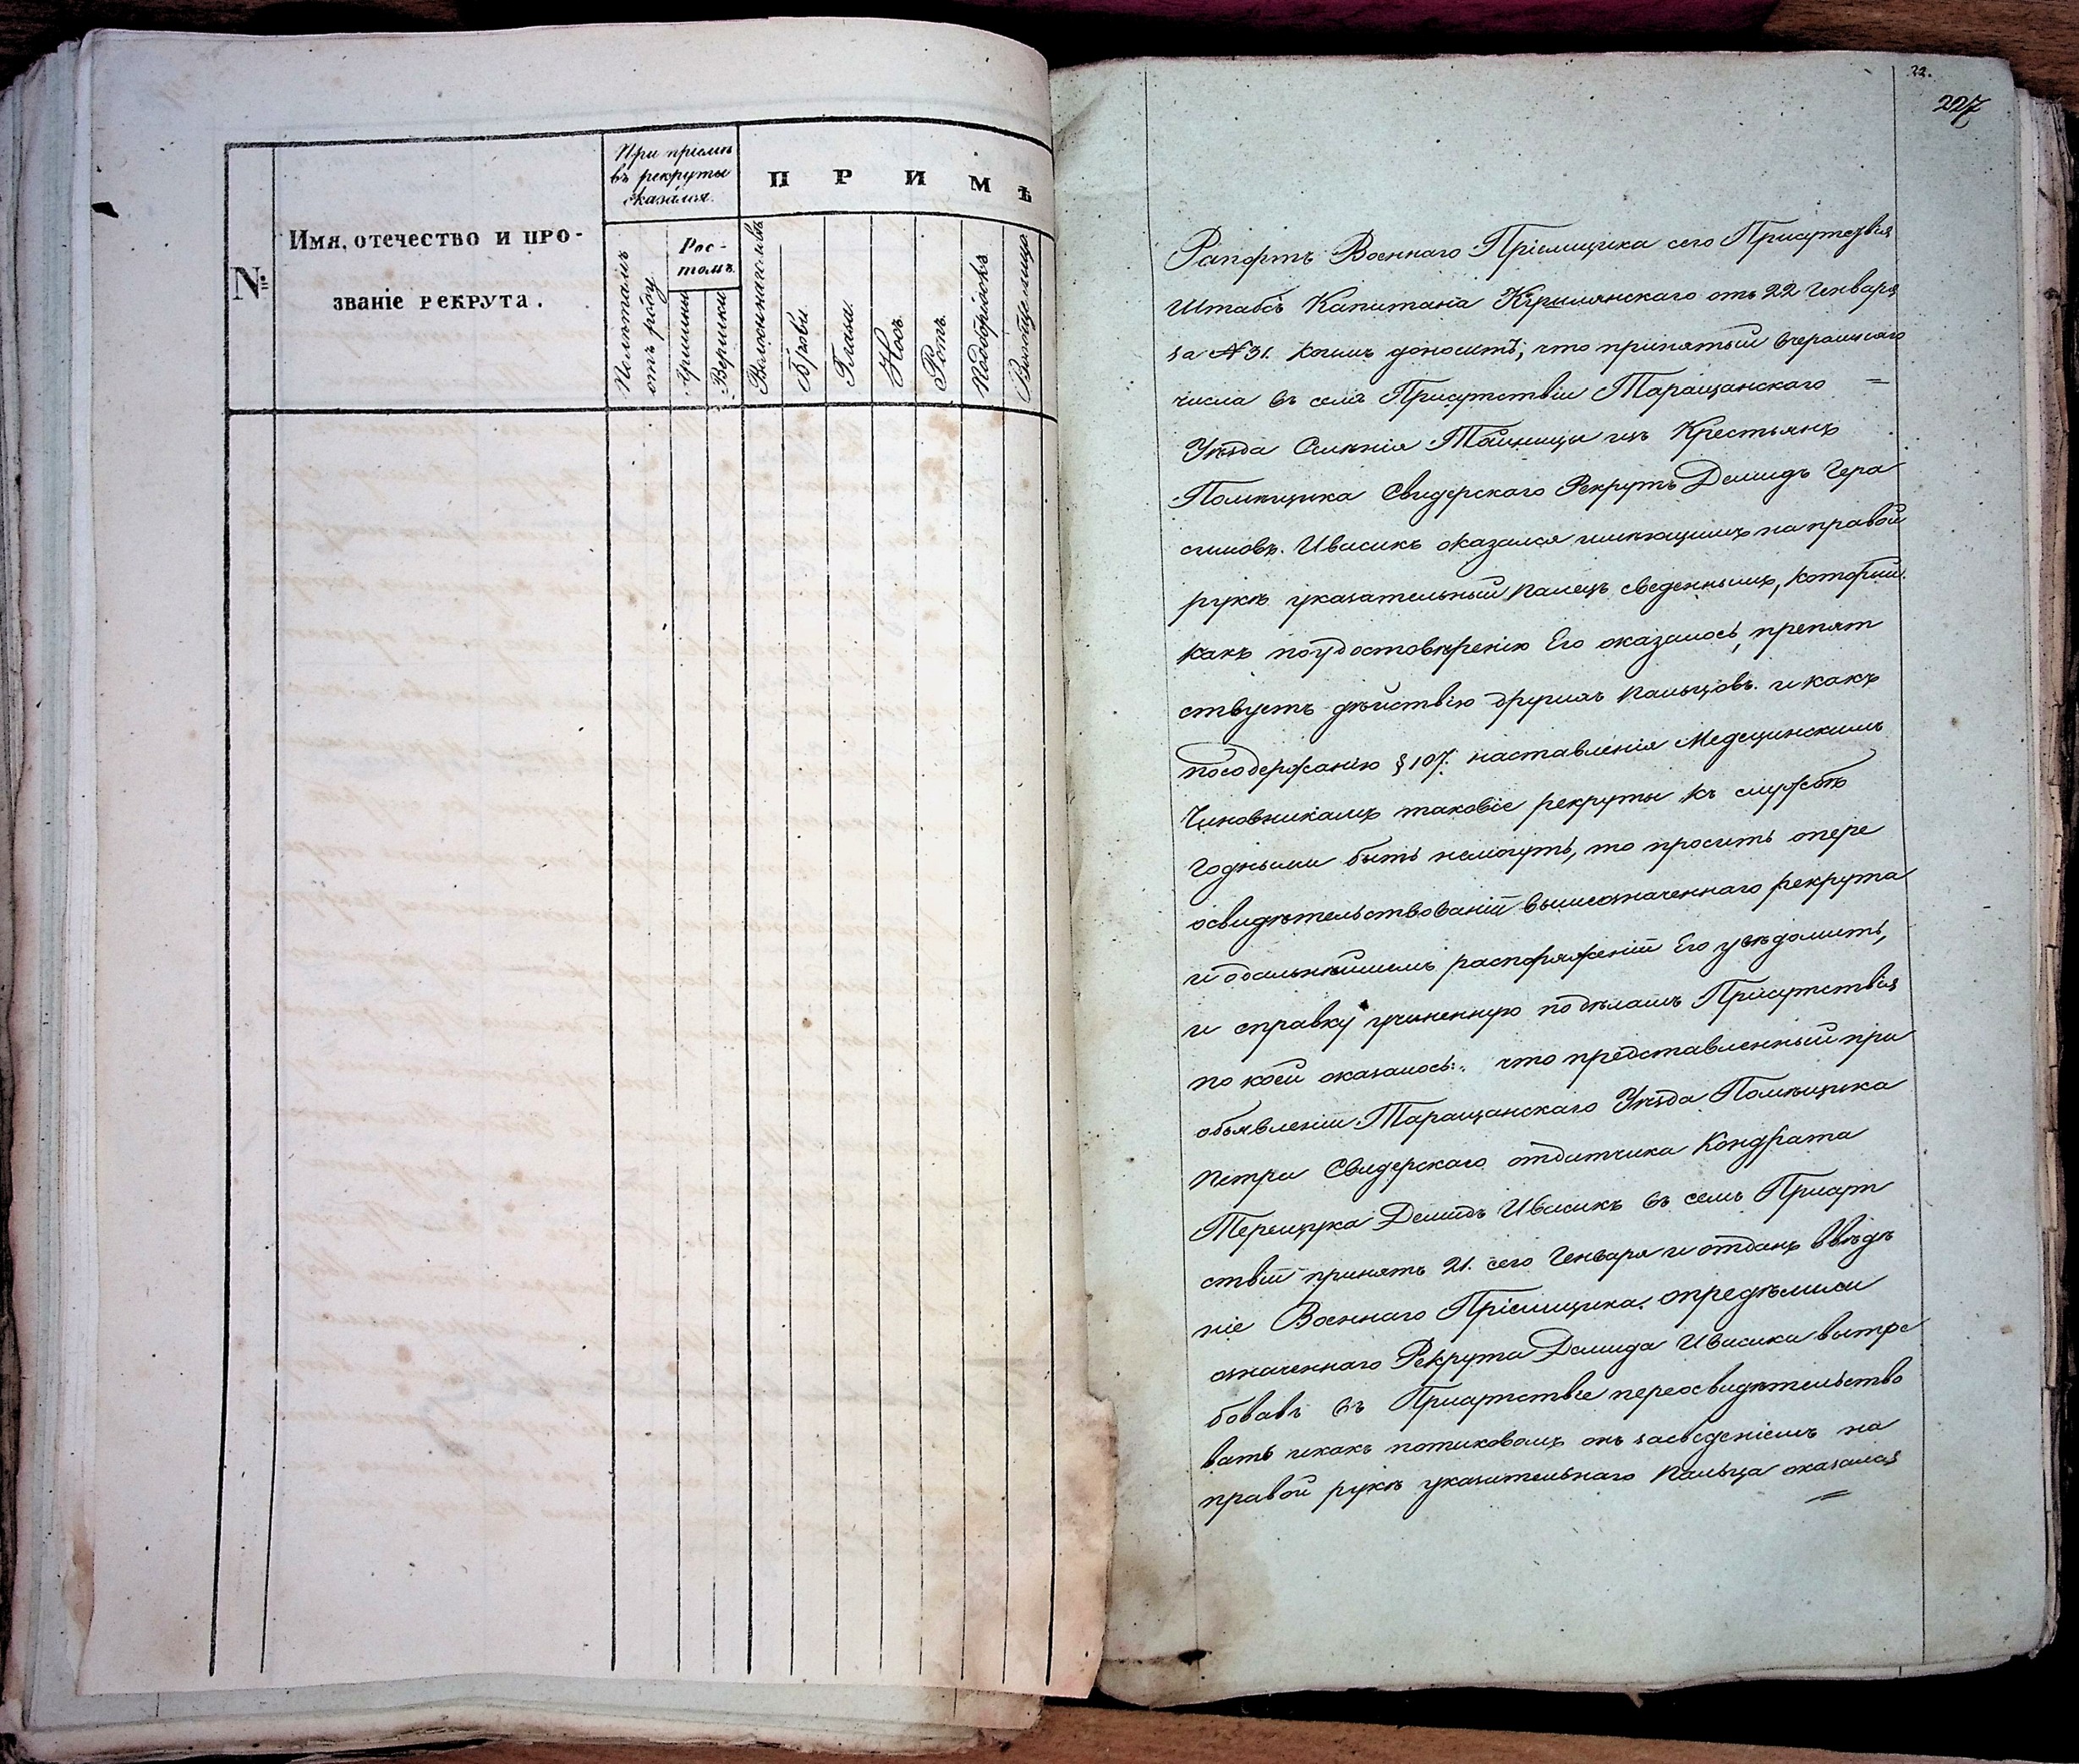 №
Имя, отечество и про-
званіе рекрута.
При пріемѣ
въ рекруты
оказался.
Полѣтамъ
отъ роду
Рос-
томъ.
Аршины
Вершки
П Р И М Ѣ
Волосы на головѣ
Брови.
Глаза.
Носъ.
Ротъ.
Подбородокъ
Вообще лицо
22.
227
Рапортъ Военнаго Пріемщика сего Присутствія
Штабсъ Капитана от 22 Генваря
за № 31. коимъ доноситъ, что принятый вчерашняго
числа въ семъ Присутствіи Таращанскаго =
Уѣзда Селенія Тайницы изъ Крестьянъ
Помѣщика Свидерскаго Рекрутъ Демидъ Гера
симовъ. Ивасикъ оказался имѣющимъ на правой
рукѣ указательный палецъ сведеннымъ, который.
какъ поудостовѣренію Его оказалось, препят
ствуетъ дѣйствію другихъ пальцовъ. и какъ
посодержанію § 107. наставленія Медецинскимъ
Чиновникамъ таковіе рекруты къ службѣ
годными быть немогутъ, то проситъ опере
освидѣтельствованіи вышеозначеннаго рекрута
и одальнѣйшемъ распоряженіи Его увѣдомить,
и справку учиненную подѣламъ Присутствія
по коей оказалось:. что представленный при
объявленіи Таращанскаго Уѣзда Помѣщика
Петра Свидерскаго отдатчика Кондрата
Терещука Демидъ Ивасикъ въ семъ Присут
ствіи принятъ 21. сего Генваря и отданъ ввѣдѣ
ніе Военнаго Пріемщика. опредѣлили
означеннаго Рекрута Демида Ивасика вытре
бовавъ въ Присутствіе переосвидѣтельство
вать икакъ потаковомъ онъ засведеніемъ на
правой рукѣ указательнаго пальца оказался
=